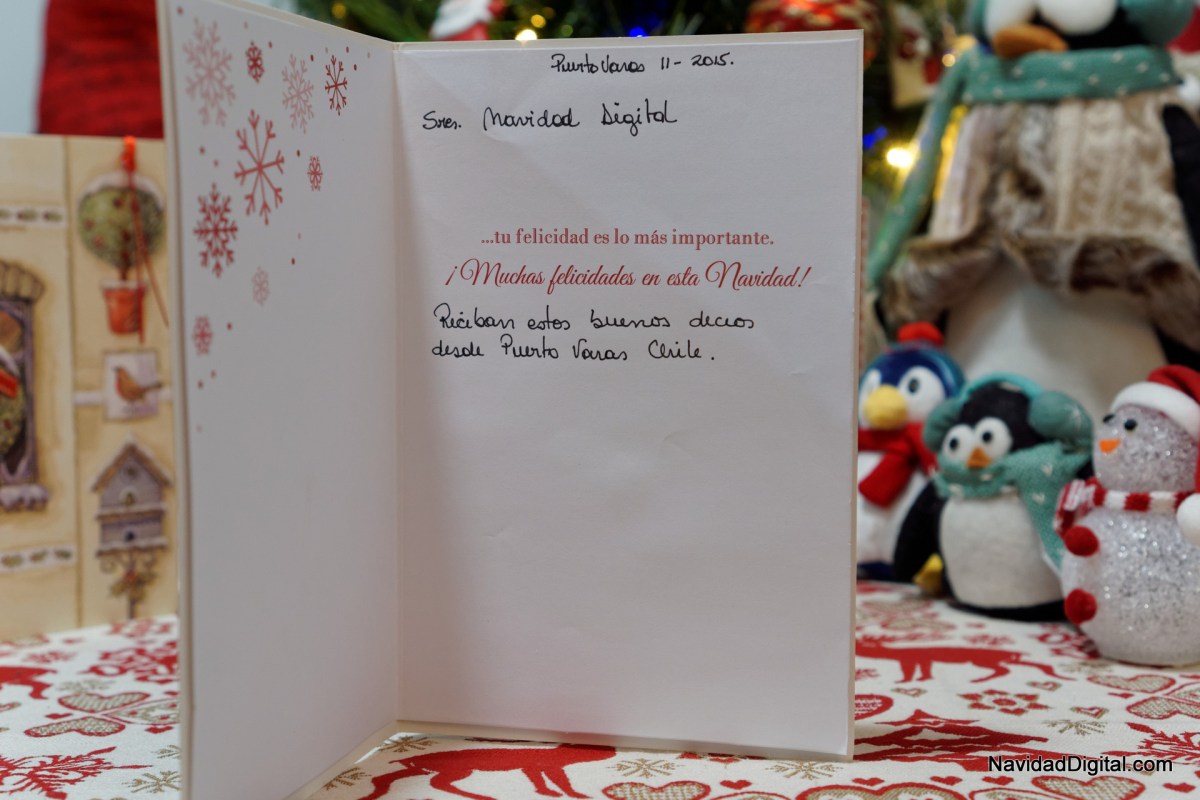 Puerto Varas 11 - 2015.
Sres. Navidad Digital
...tu felicidad es lo más importante.
¡Muchas felicidades en esta Navidad!
Reciban estos buenos deceos
desde Puerto Varas Chile.
NavidadDigital.com